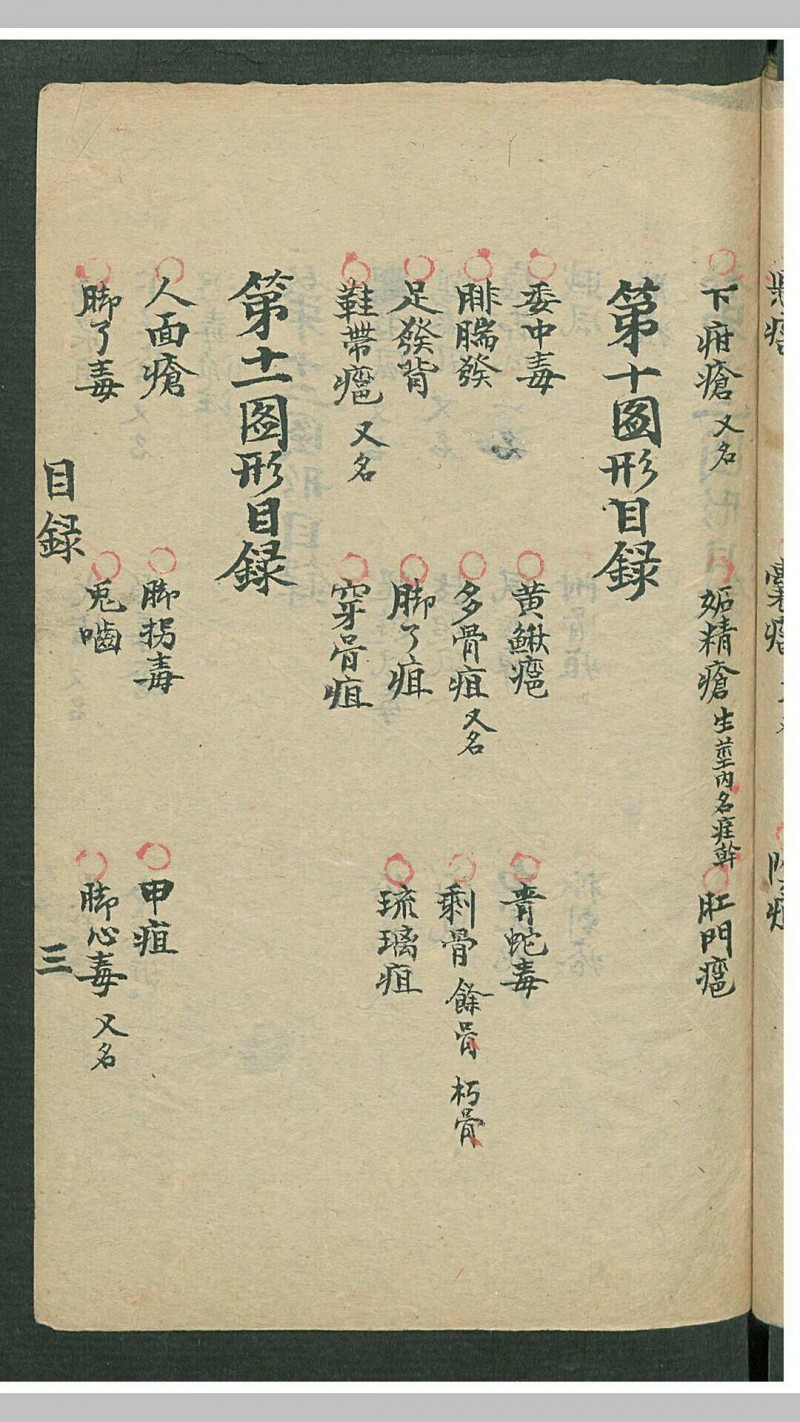 下疳瘡 又名 妬精瘡 生莖内名疰幹 肛門癰
第十圖形目録
委中毒 黄鰍癰 青蛇毒
腓腨發 多骨疽 又名 剩骨 餘骨 朽骨
足發背 脚了疽 琉璃疽
鞋帶癰 又名 穿骨疽
第十一圖形目録
人面瘡 脚拐毒 甲疽
脚了毒 兎嚙 脚心毒 又名
目録 三